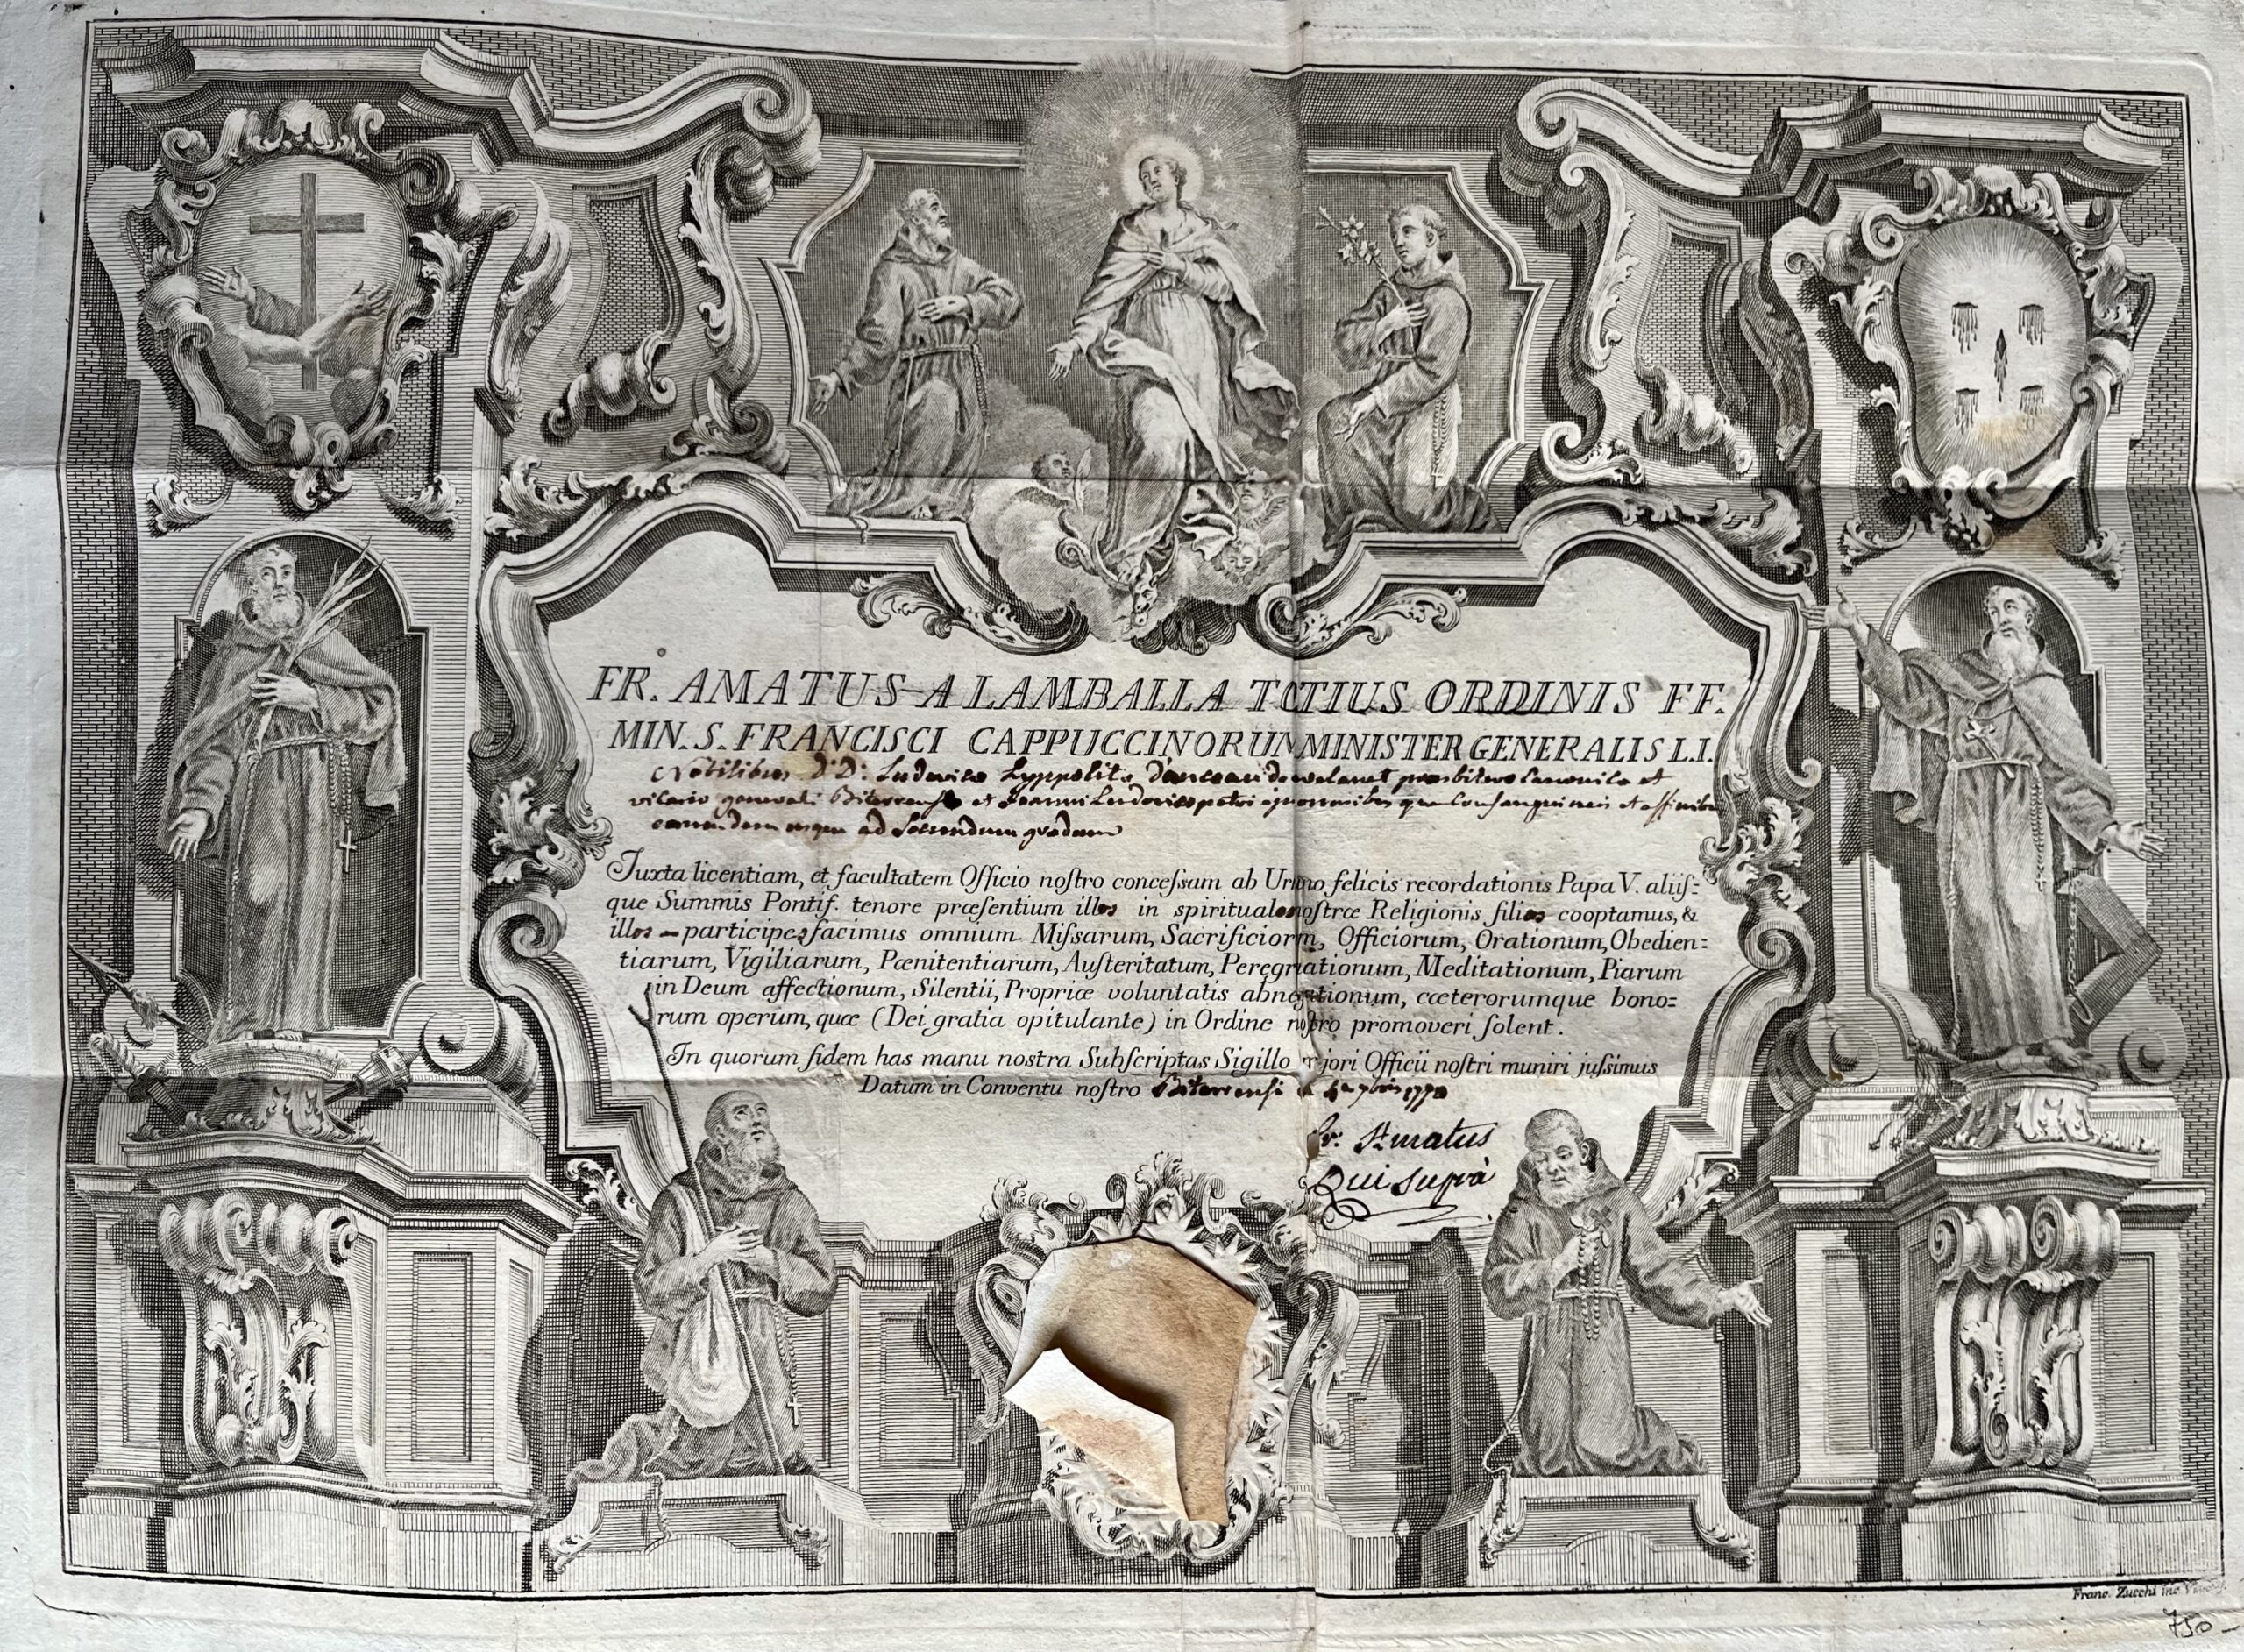 FR. AMATUS A LAMBALLA TOTIUS ORDINIS FF.
MIN. S. FRANCISCI CAPPUCCINORUM MINISTER GENERALIS L.I.
Nobilibus D.D. Ludovico hyppolito presbitero Canonico et
vicario generali Biterrensi et Joanni Ludovico que Consanguineis et affinibus
usque ad secundum gradum
Juxta licentiam, et facultatem Officio noſtro conceſsam ab Urbano felicis recordationis Papa V. aliiſ=
que Summis Pontif. tenore præſentium illos in spirituales noſtræ Religionis filios cooptamus, &
illos participes facimus omnium Miſsarum, Sacrificiorum, Officiorum, Orationum, Obedien=
tiarum, Vigiliarum, Pœnitentiarum, Auſteritatum, Peregrinationum, Meditationum, Piarum
in Deum affectionum, Silentii, Propriæ voluntatis abnegationum, cæterorumque bono=
rum operum, quæ (Dei gratia opitulante) in Ordine noſtro promoveri ſolent.
In quorum fidem has manu nostra Subſcriptas Sigillo majori Officii noſtri muniri juſsimus
Datum in Conventu noſtro Biterrensi 7bris
fr. Amatus
Qui suprà
Franc. Zucchi inc.
750 -